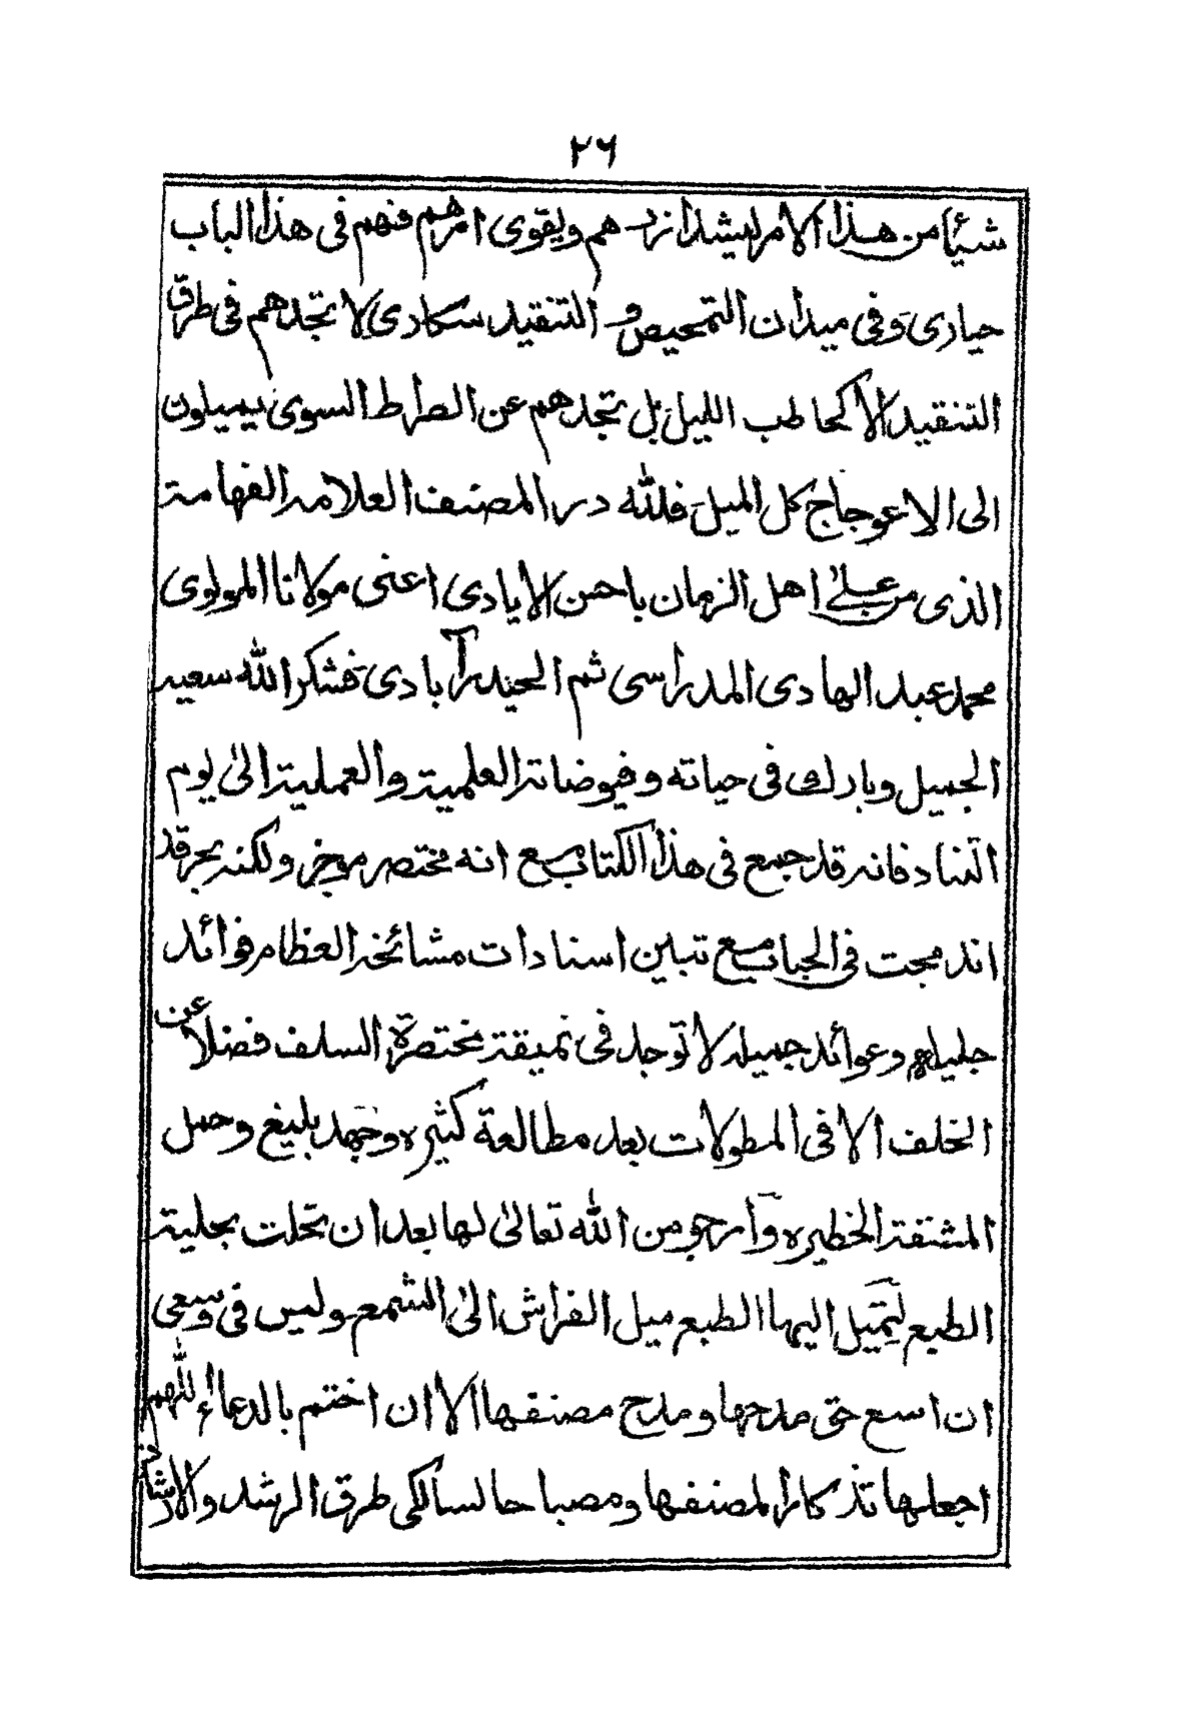 ٢٦
شيئا من هذا الامر ليشد ازرهم ويقوى امرهم فهم فى هذا الباب
حيارى وفى ميدان التمحيص و التنقيد سكارى لا تجدهم فى طرق
التنقيد الا كحاطب الليل بل تجدهم عن الصراط السوى يميلون
الى الاعوجاج كل الميل فلله در المصنف العلامة الفهامة
الذى من على اهل الزمان باحسن الايادى اعنى مولانا المولوى
محمد عبد الهادى المدراسى ثم الحيدرآبادى فشكر الله سعيه
الجميل وبارك فى حياته وفيوضاته العلمية والعملية الىٰ يوم
التناد فانه قد جمع فى هذا الكتاب مع انه مختصر موجز ولكنه بحر قد
اندمجت فى الجباب مع تبيين اسنادات مشائخه العظام فوائد
جليلة وعوائد جميلة لا توجد فى نميقة مختصرة السلف فضلا عن
الخلف الا فى المطولات بعد مطالعة كثيره وجهد بليغ وحمل
المشقة الخطيره وآرجو من الله تعالىٰ لها بعد ان تحلت بحلية
الطبع لتميل اليها الطبع ميل الفراش الىٰ الشمع وليس فى وسعى
ان اسع حق مدحها ومدح مصنفها الا ان اختم بالدعاء اللّٰهم
اجعلها تذكارا لمصنفها ومصباحا لسالكى طرق الرشد والارشاد